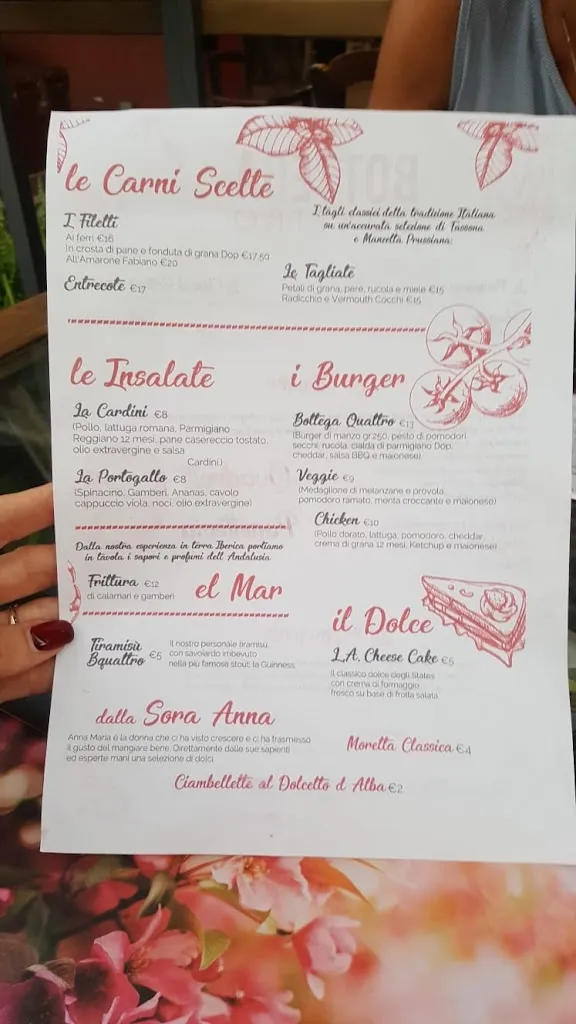 le Carni Scelte
I Filetti
Ai ferri €16
In crosta di pane e fonduta di grana Dop €17.50
All'Amarone Fabiano €20
Entrecote €17
I tagli classici della tradizione Italiana
su un'accurata selezione di Sassona
e Manzetta Prussiana:
Le Tagliate
Petali di grana, pere, rucola e miele €15
Radicchio e Vermouth Cocchi €15
le Insalate
La Cardini €8
(Pollo, lattuga romana, Parmigiano
Reggiano 12 mesi, pane casereccio tostato,
olio extravergine e salsa
Cardini)
La Portogallo €8
(Spinacino, Gamberi, Ananas, cavolo
cappuccio viola, noci, olio extravergine)
i Burger
Bottega Quattro €13
(Burger di manzo gr.250, pesto di pomodori
secchi, rucola, cialda di parmigiano Dop,
cheddar, salsa BBQ e maionese)
Veggie €9
(Medaglione di melanzane e provola,
pomodoro ramato, menta croccante e maionese)
Chicken €10
(Pollo dorato, lattuga, pomodoro, cheddar,
crema di grana 12 mesi, Ketchup e maionese)
Dalla nostra esperienza in terra Iberica portiamo
in tavola i sapori e profumi dell'Andalusia
Frittura €12
di calamari e gamberi
el Mar
Tiramisù
Bquattro €5
Il nostro personale tiramisù,
con savoiardo imbevuto
nella più famosa stout: la Guinness
il Dolce
L.A. Cheese Cake €5
Il classico dolce degli States
con crema di formaggio
fresco su base di frolla salata
dalla Sora Anna
Anna Maria è la donna che ci ha visto crescere e ci ha trasmesso
il gusto del mangiare bene. Direttamente dalle sue sapienti
ed esperte mani una selezione di dolci
Moretta Classica €4
Ciambellette al Dolcetto d Alba €2